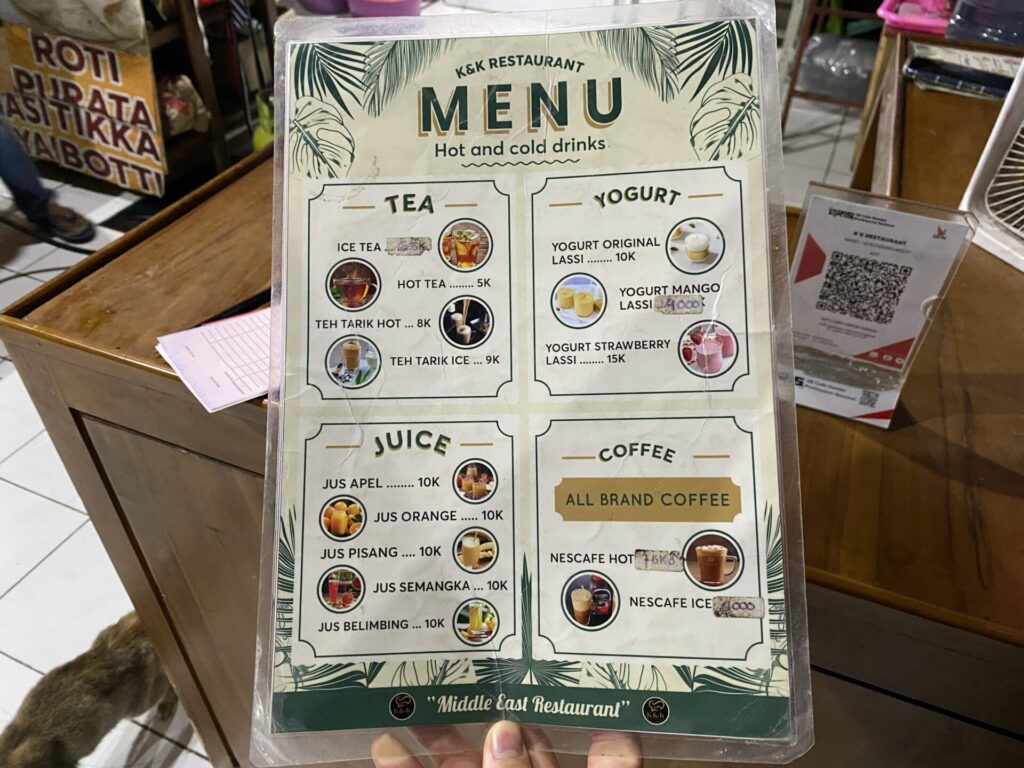 ROTI
PURATA
TIKKA
BOTTI
K&K RESTAURANT
MENU
Hot and cold drinks
TEA
ICE TEA
HOT TEA ........ 5K
TEH TARIK HOT ... 8K
TEH TARIK ICE ... 9K
YOGURT
YOGURT ORIGINAL
LASSI ........ 10K
YOGURT MANGO
LASSI
YOGURT STRAWBERRY
LASSI ........ 15K
JUICE
JUS APEL ........ 10K
JUS ORANGE ..... 10K
JUS PISANG .... 10K
JUS SEMANGKA ... 10K
JUS BELIMBING ... 10K
COFFEE
ALL BRAND COFFEE
NESCAFE HOT
NESCAFE ICE
"Middle East Restaurant"
K&K
K K RESTAURANT